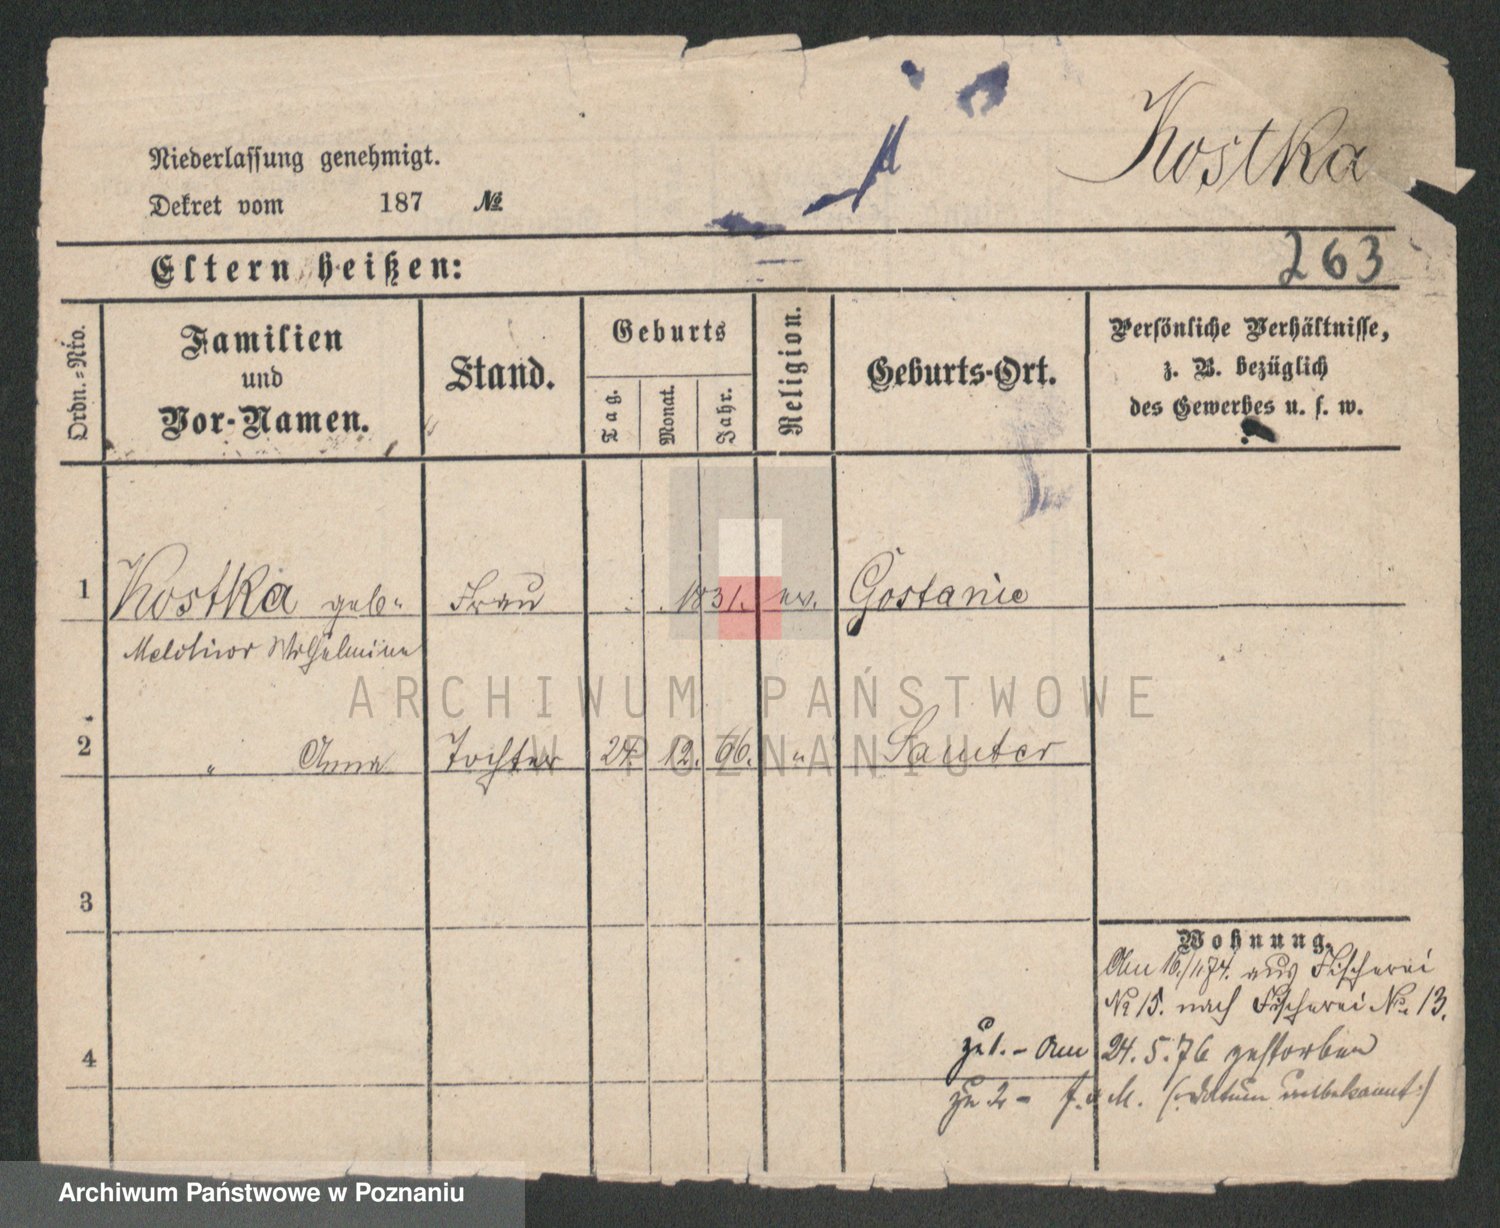 Kostka
Niederlassung genehmigt.
Dekret vom 187 №
263
Eltern heißen:
Ordn.=Nro.
Familien
und
Vor-Namen.
Stand.
Geburts
Tag.
Monat.
Jahr.
Religion.
Geburts-Ort.
Persönliche Verhältnisse,
z. B. bezüglich
des Gewerbes u. s. w.
1 Kostka geb. Frau 1831. ev.
Wilhelmine
2 " Anna Tochter 24. 12. 66. " Samter
3
4
Wohnung.
Am aus Fischerei
№ 15. nach Fischerei №. 13.
zu 1. - Am 24. 5. 76 gestorben
zu 2 - (: Datum unbekannt :)
ARCHIWUM PAŃSTWOWE
W POZNANIU
Archiwum Państwowe w Poznaniu